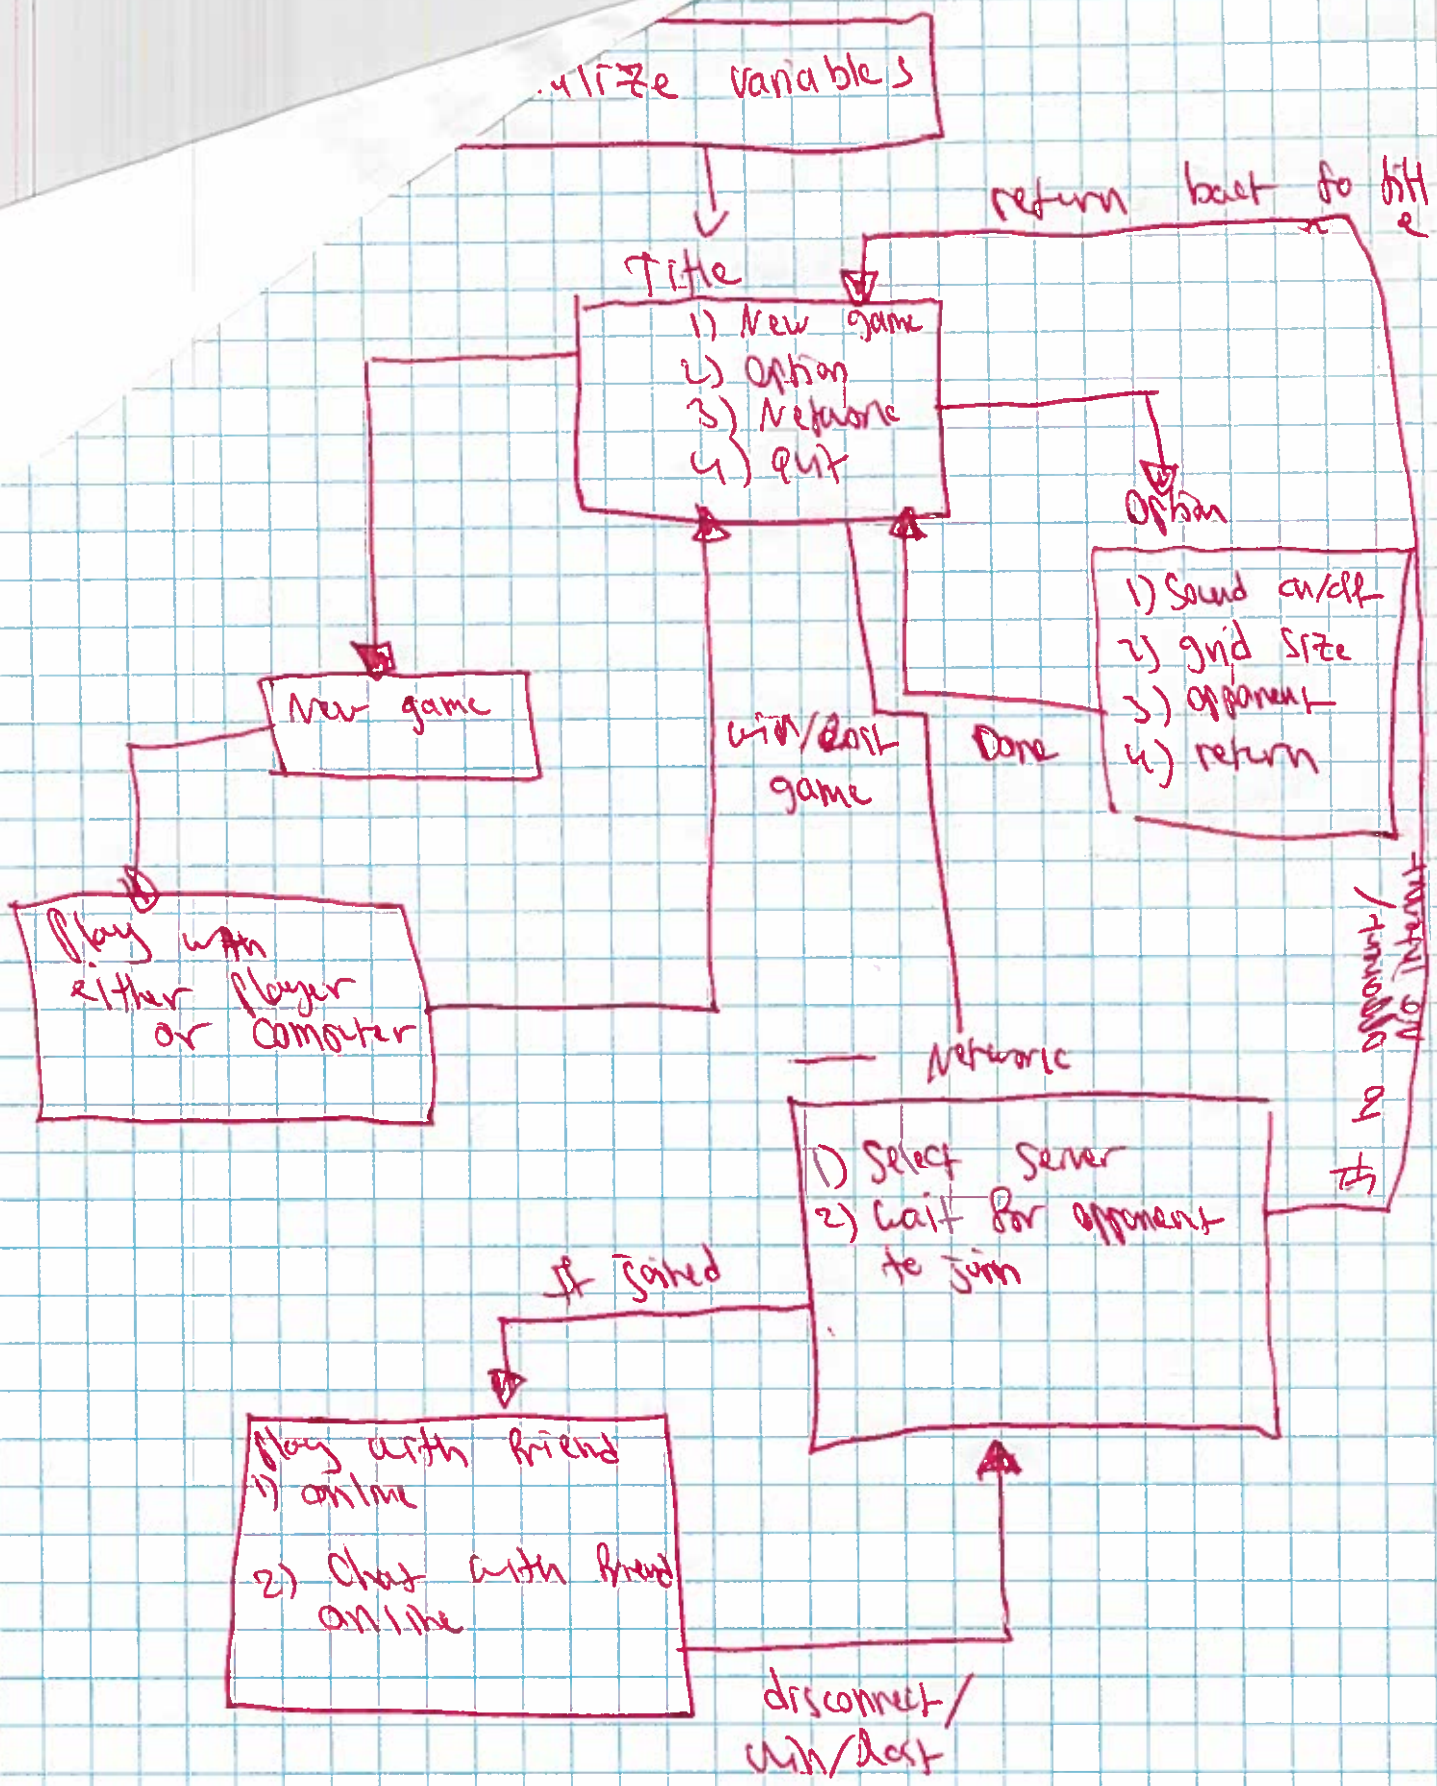 variables
return back to titl
e
Title
1) New game
2) Option
3) Network
4) Quit
Option
1) Sound on/off
2) grid size
3) opponent
4) return
New game
win/lost
game
Done
Play with
either player
or computer
If q opponent/
No internet
Network
1) Select server
2) wait for opponent
to join
If joined
Play with friend
1) online
2) Chat with friend
online
disconnect/
win/lost